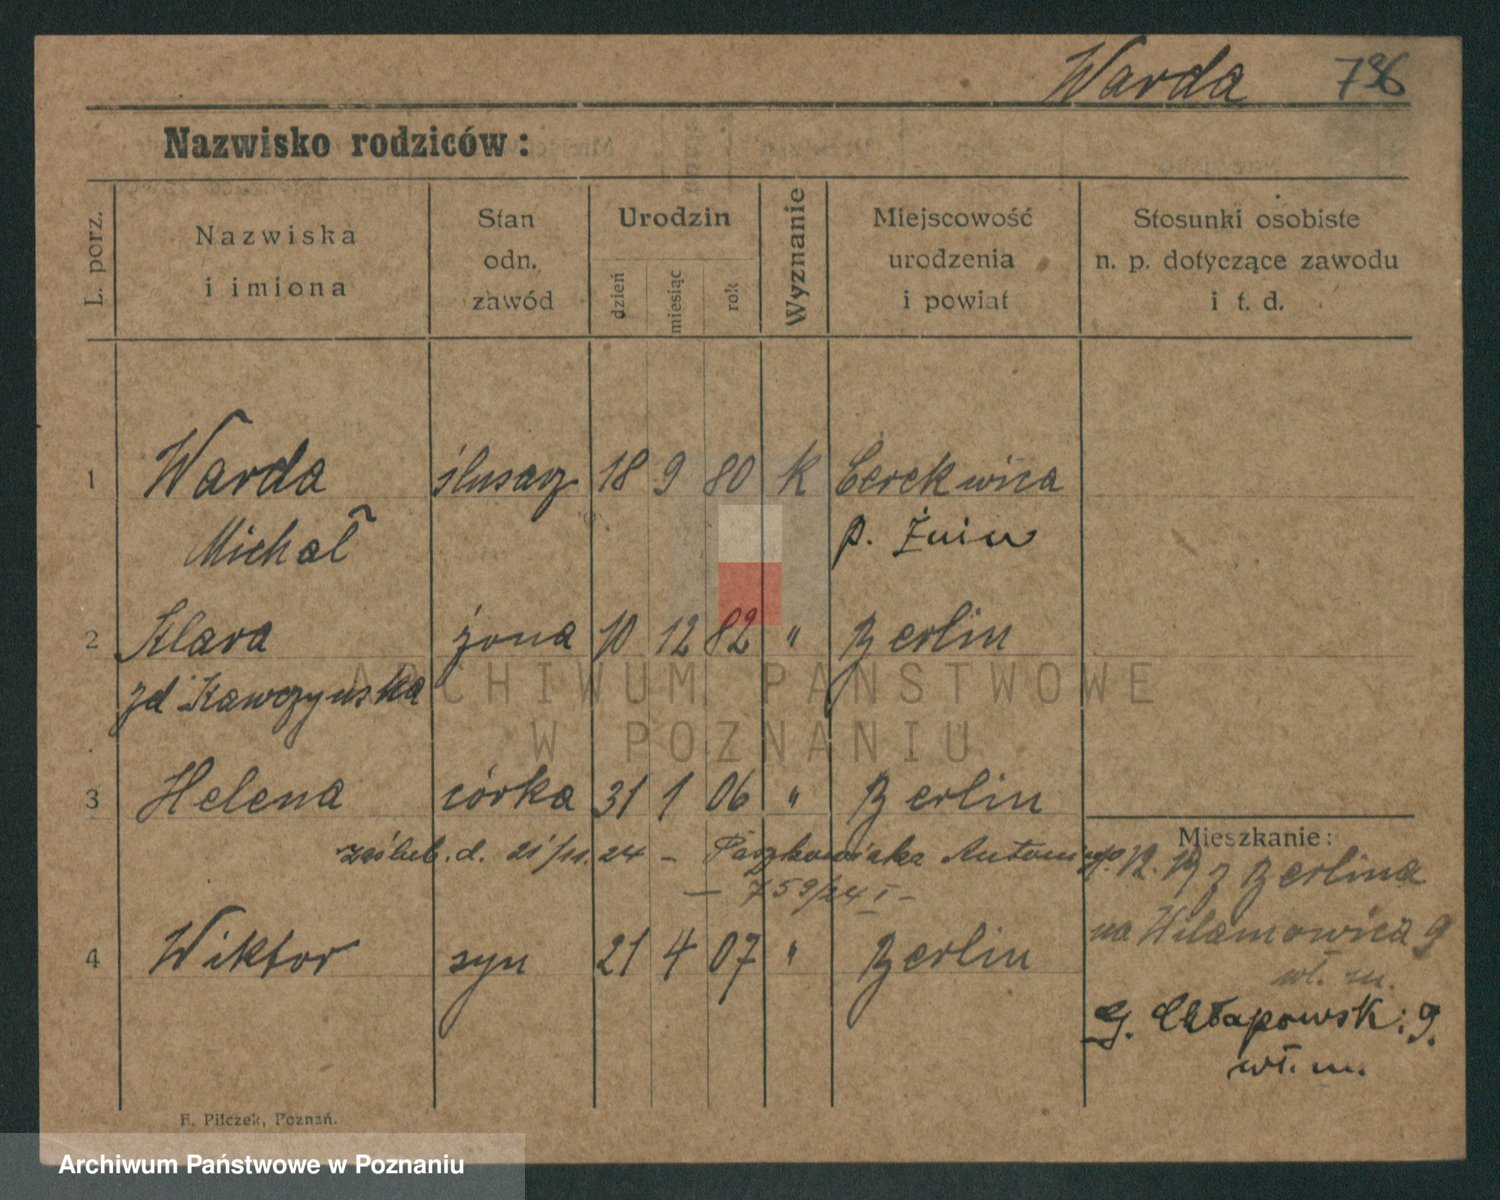 Warda 796
Nazwisko rodziców:
L. porz.
Nazwiska
i imiona
Stan
odn.
zawód
Urodzin
dzień
miesiąc
rok
Wyznanie
Miejscowość
urodzenia
i powiat
Stosunki osobiste
n. p. dotyczące zawodu
i t. d.
1 Warda ślusarz 18 9 80 k Cerekwica
Michał p. Żnin
2 Klara żona 10 12 82 " Berlin
zd Kawczyńska
ARCHIWUM PAŃSTWOWE
W POZNANIU
3 Helena córka 31 1 06 " Berlin
Mieszkanie:
zaślub. d. 21/11. 24 – Paszkowiaka Antoniego
z Berlina
– 759/24 I –
na Wilamowica 9
4 Wiktor syn 21 4 07 " Berlin
wł. m.
G. Chłapowsk. 9.
wł. m.
F. Pilczek, Poznań.
Archiwum Państwowe w Poznaniu